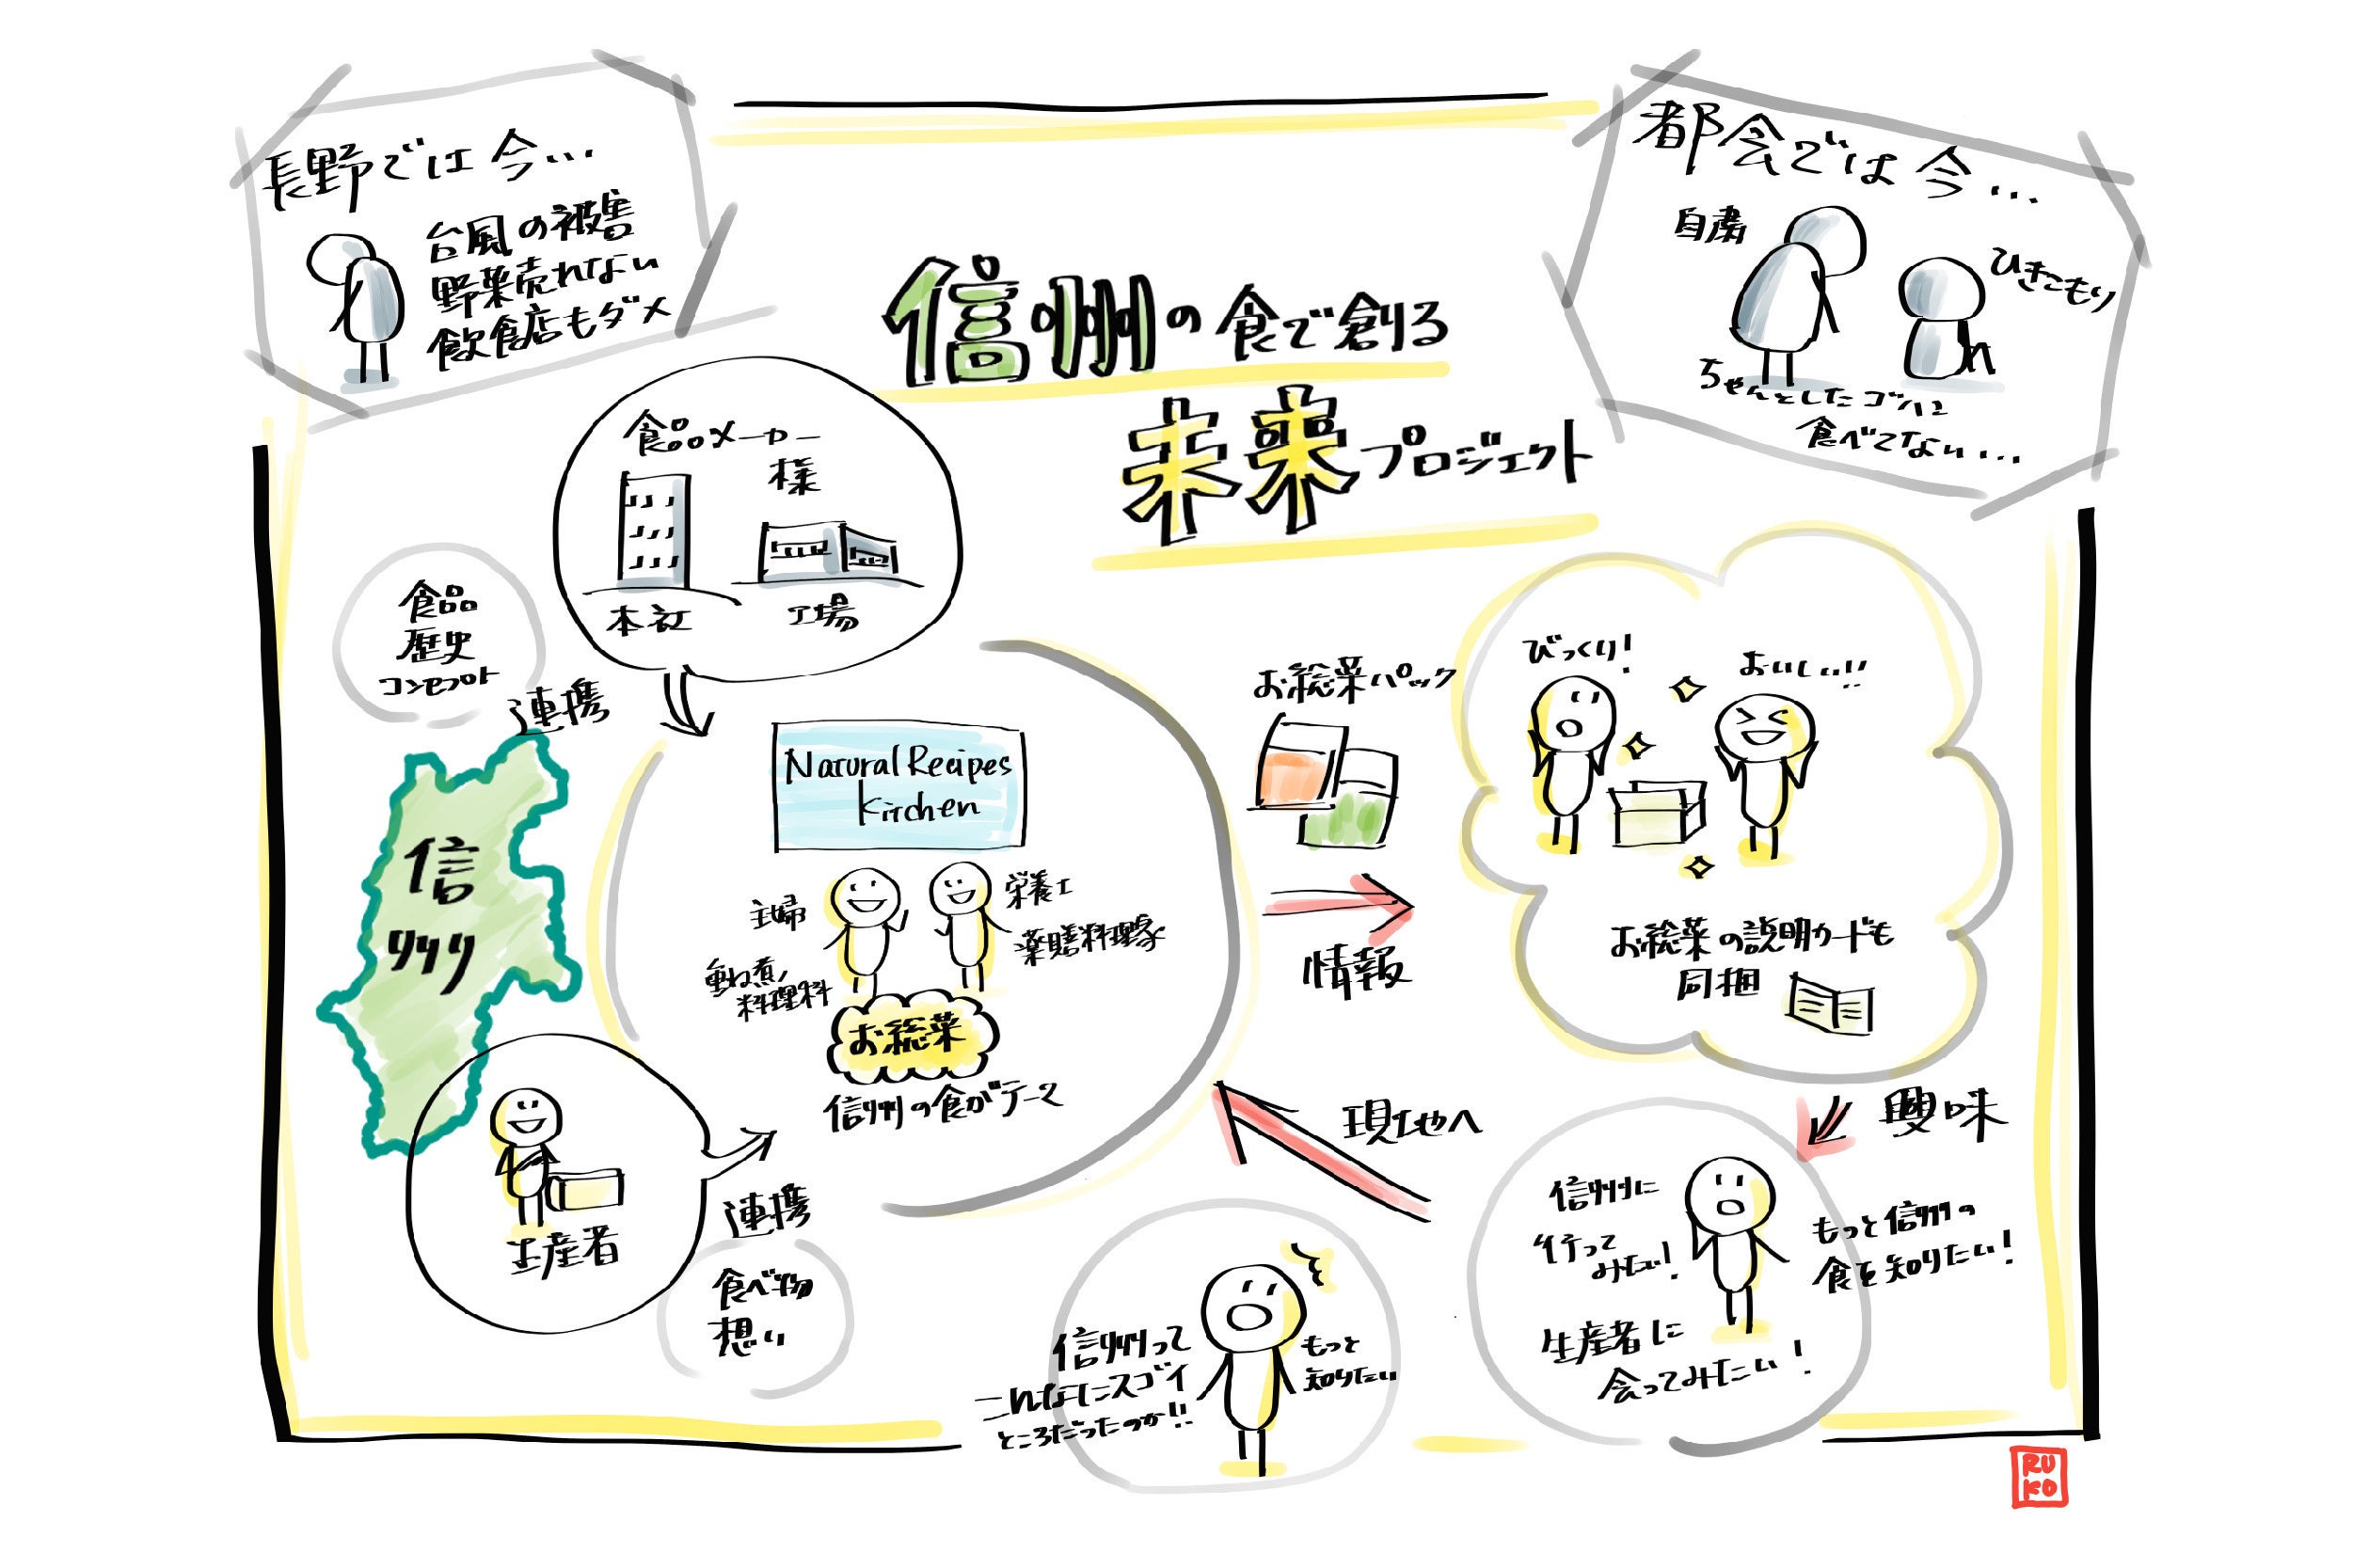 長野では今…
台風の被害
野菜売れない
飲食店もダメ
都会では今…
自粛
ひきこもり
ちゃんとしたゴハン
食べてない…
信州の食で創る
未来プロジェクト
食品メーカー
様
本社
工場
食品
歴史
コンセプト
連携
信州
Natural Recipes
Kitchen
主婦
栄養士
薬膳料理家
重ね煮
料理科
お総菜
信州の食がテーマ
生産者
連携
食べ物
想い
お総菜パック
情報
びっくり!
おいしい!!
お総菜の説明カードも
同梱
興味
信州に
行って
みたい!
もっと信州の
食を知りたい!
生産者に
会ってみたい!
現地へ
信州って
こんなにスゴイ
ところだったのか!!
もっと
知りたい
RU
KO